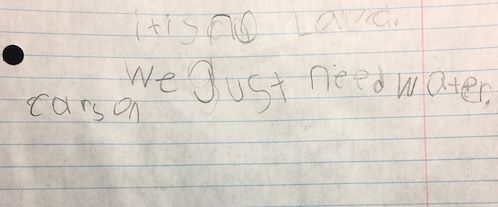 it is no Lava.
we Just need water.
carson